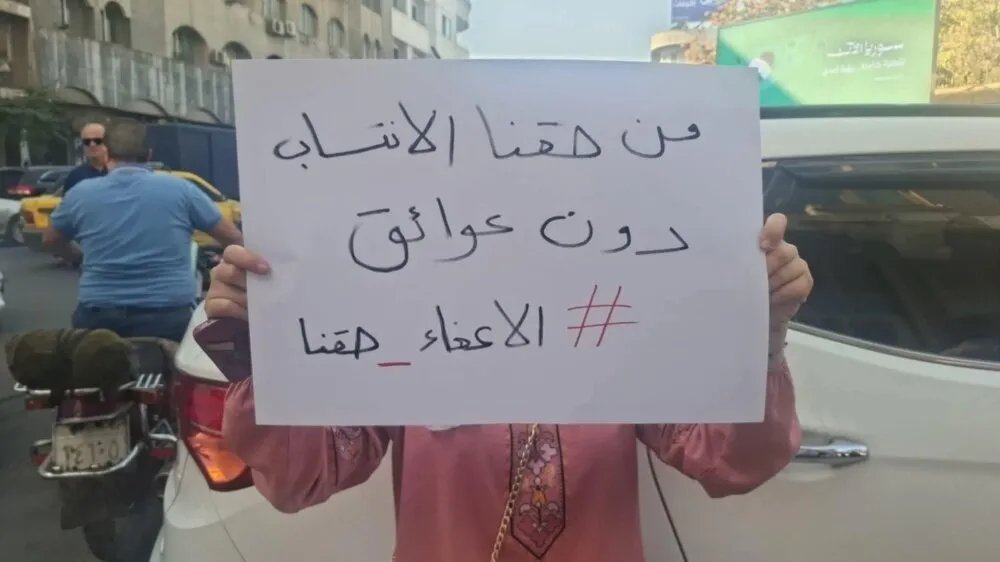 من حقنا الانتساب
دون عوائق
#الاعفاء_حقنا
سوريا الآن